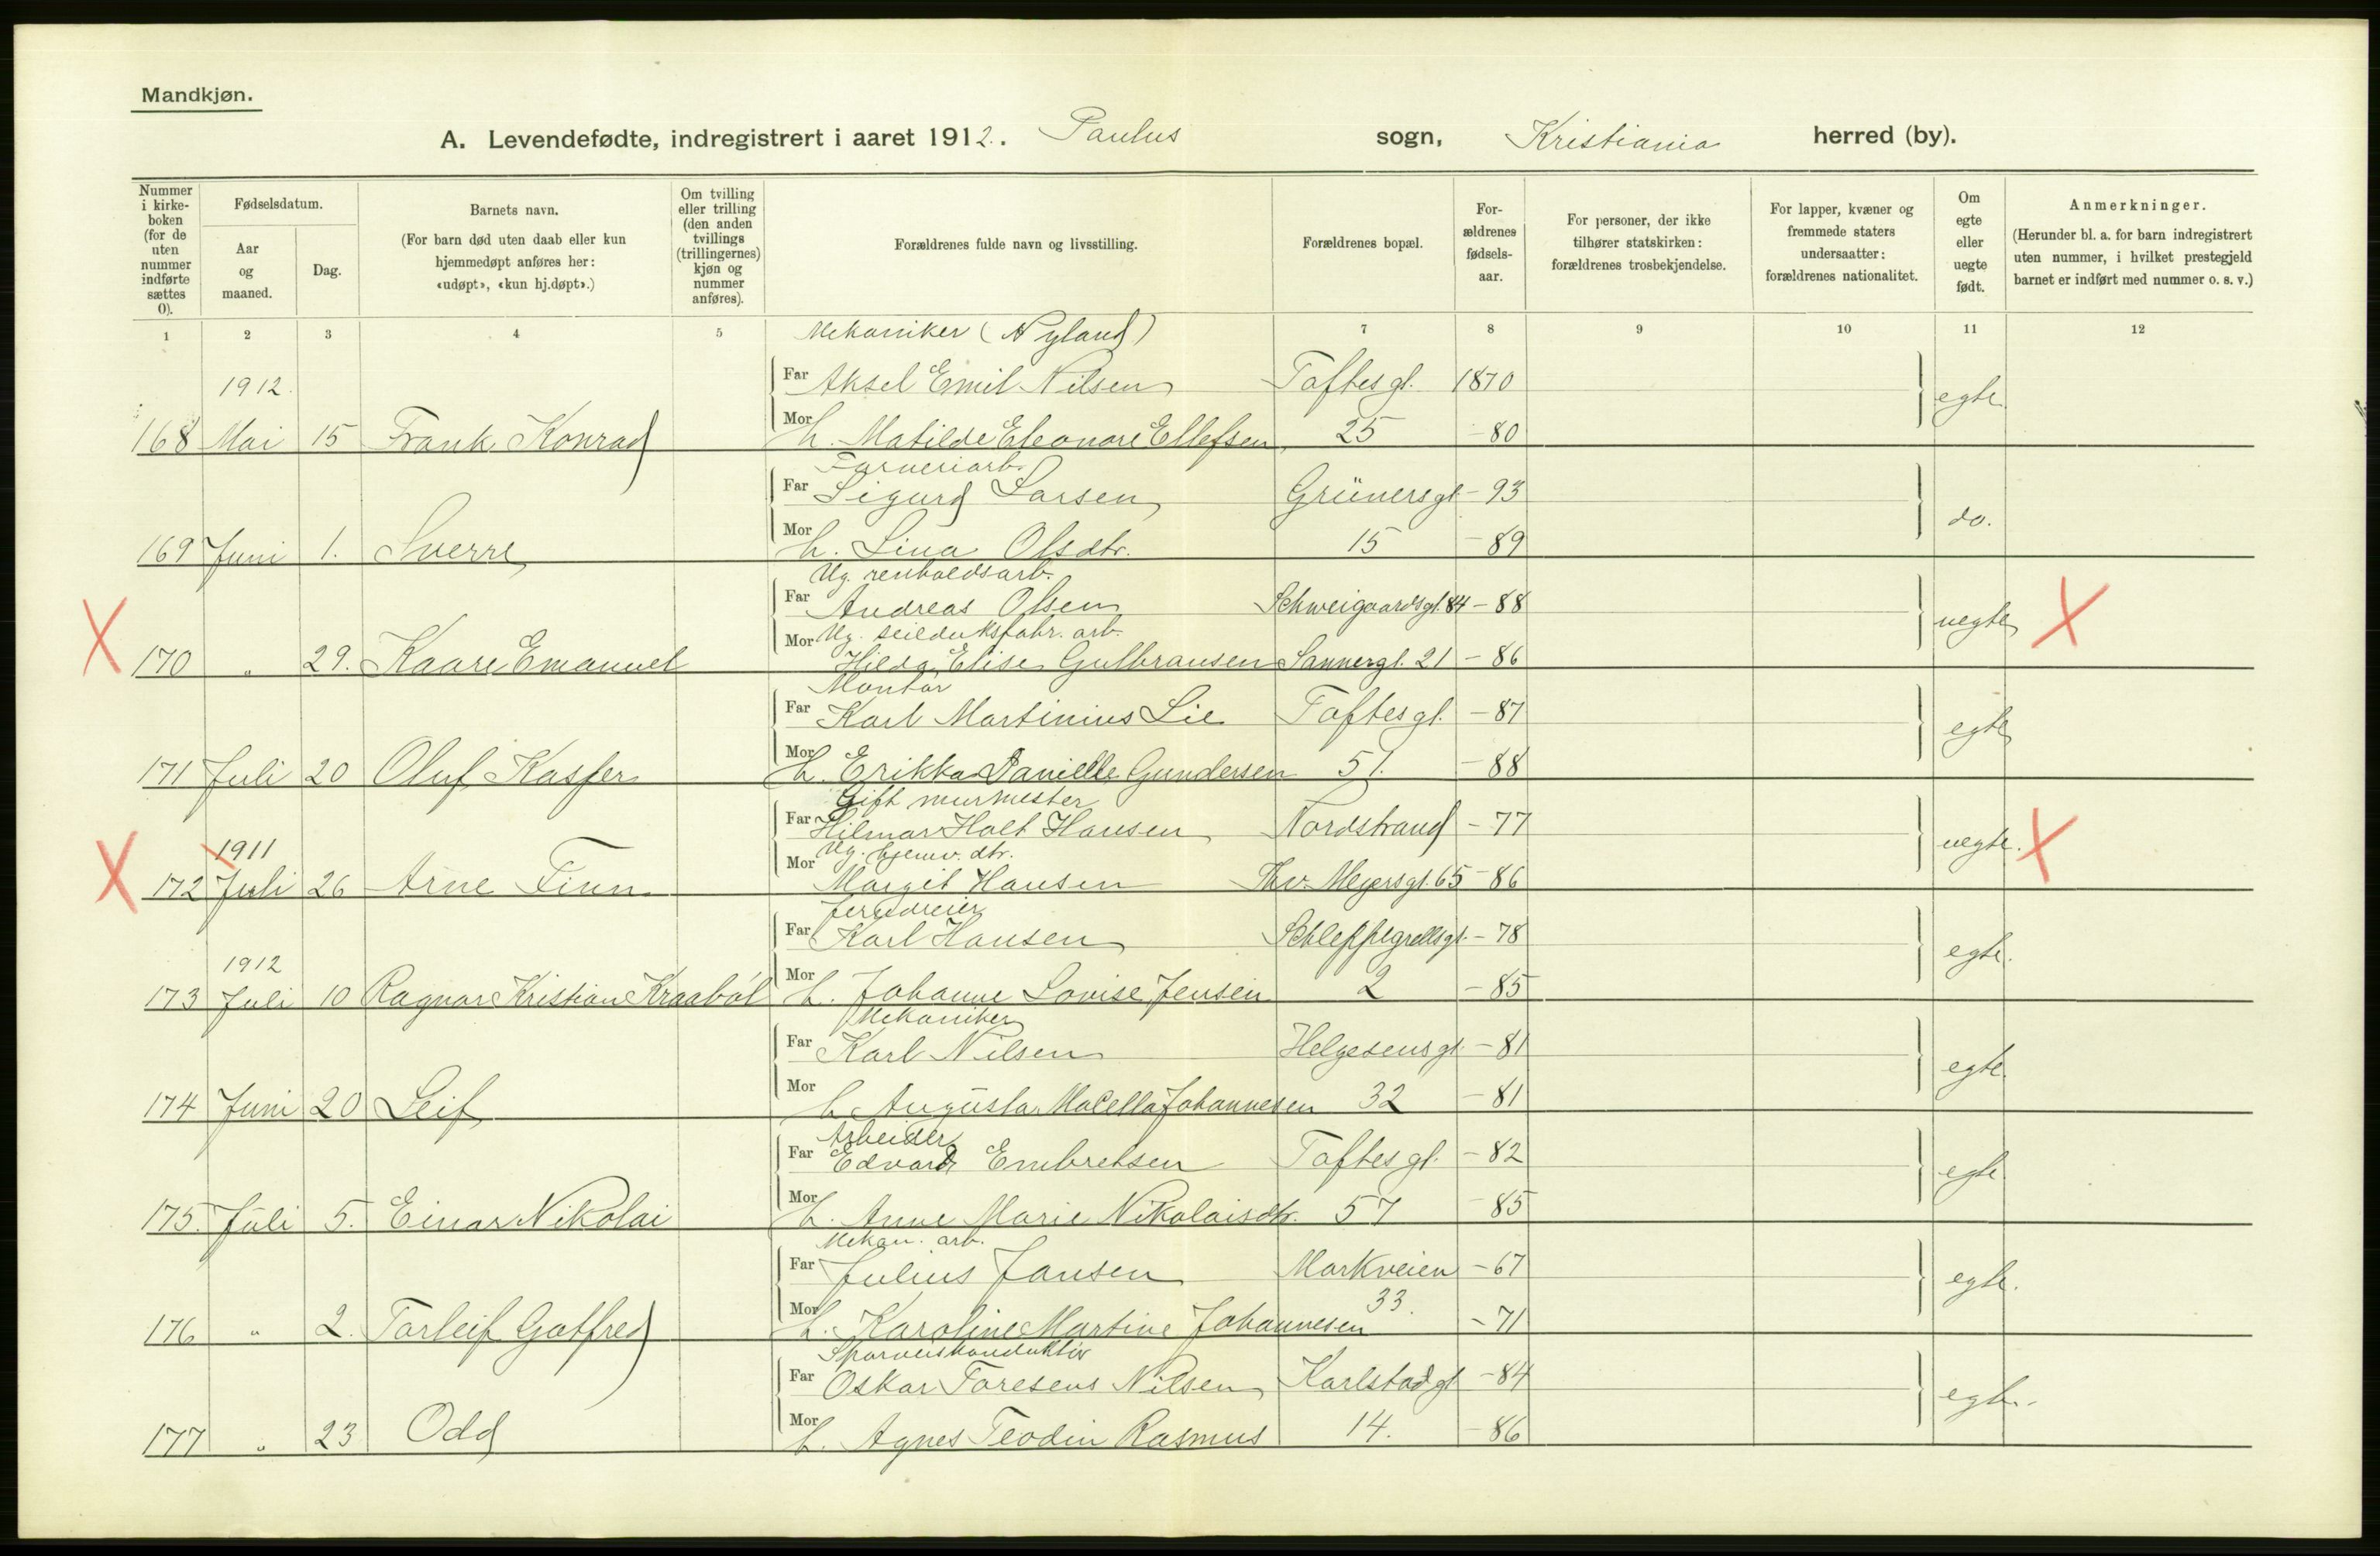 Mandkjøn.
A. Levendefødte, indregistrert i aaret 1912. Paulus sogn, Kristiania herred (by).
Nummer i kirke-boken (for de uten nummer indførte sættes 0).
Fødselsdatum.
Aar og maaned.
Dag.
Barnets navn.
(For barn død uten daab eller kun hjemmedøpt anføres her: «udøpt», «kun hj.døpt».)
Om tvilling eller trilling (den anden tvillings (trillingernes) kjøn og nummer anføres).
Forældrenes fulde navn og livsstilling.
Forældrenes bopæl.
For-ældrenes fødsels-aar.
For personer, der ikke tilhører statskirken: forældrenes trosbekjendelse.
For lapper, kvæner og fremmede staters undersaatter: forældrenes nationalitet.
Om egte eller uegte født.
Anmerkninger.
(Herunder bl. a. for barn indregistrert uten nummer, i hvilket prestegjeld barnet er indført med nummer o. s. v.)
1 2 3 4 5 7 8 9 10 11 12
Mekaniker (Nyland)
1912. Far Aksel Emil Nilsen Toftesgt. 1870 egte
168 Mai 15 Frank Konrad Mor h. Matilde Eleonore Ellefsen 25 -80
Farveriarb.
Far Sigurd Larsen Grünersgt -93 do.
169 Juni 1. Sverre Mor h. Lina Olsdtr. 15 -89
Ug. renholdsarb.
Far Andreas Olsen Schweigaardsgt. 84 -88 uegte X
Ug. seilduksfabr. arb.
X 170 " 29. Kaare Emanuel Mor Hilda Elise Gulbransen Sannergt. 21 -86
Montør
Far Karl Martinius Lie Toftesgt. -87 egte
171 Juli 20 Oluf Kasper Mor h. Erikka Danielle Gundersen 51. -88
Gift murmester
Far Hilmar Holt Hansen Nordstrand -77 uegte. X
1911 Ug. hjemv. dtr.
X 172 Juli 26 Arne Finn Mor Margit Hansen Thv. Meyersgt. 65 -86
Jerndreier
Far Karl Hansen Schleppegrellsgt. -78 egte.
1912
173 Juli 10 Ragnar Kristian Kraabøl Mor h. Johanne Lovise Jensen 2 -85
Mekaniker
Far Karl Nilsen Helgesensgt. -81 egte
174 Juni 20 Leif Mor h. Augusta Macella Johannesen 32 -81
Arbeider
Far Edvard Embretsen Toftesgt. -82 egte
175. Juli 5. Einar Nikolai Mor h. Anne Marie Nikolaisdtr. 57 -85
Mekan. arb.
Far Julius Jansen Markveien -67 egte.
176 " 2. Torleif Gotfred Mor h. Karoline Martine Johannesen 33. -71
Sporveiskonduktør
Far Oskar Toresens Nilsen Karlstadgt -84 egte.
177 " 23 Odd Mor h. Agnes Teodin Rasmus 14. -86